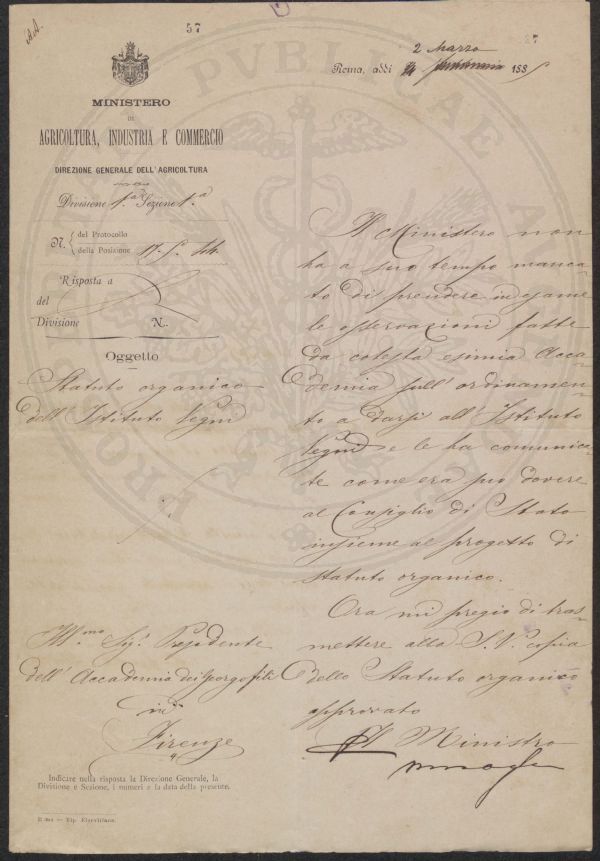 57
Roma, addì 2 Marzo 1885
MINISTERO
DI
AGRICOLTURA, INDUSTRIA E COMMERCIO
DIREZIONE GENERALE DELL'AGRICOLTURA
Divisione 1.a Sezione 1.a
N. del Protocollo
della Posizione
Risposta a
del
Divisione N.
Oggetto
Statuto organico
dell'Istituto Vegni
Il Ministero non
ha a suo tempo manca-
to di prendere in esame
le osservazioni fatte
da cotesta esimia Acca-
demia sull'ordinamen-
to a darsi all'Istituto
Vegni e le ha comunica-
te come era suo dovere
al Consiglio di Stato
insieme al progetto di
Statuto organico.
Ora mi pregio di tras-
mettere alla S.V. copia
dello Statuto organico
approvato
Il Ministro
Ill.mo Sig. Presidente
dell'Accademia dei Georgofili
in
Firenze
Indicare nella risposta la Direzione Generale, la
Divisione e Sezione, i numeri e la data della presente.
Tip. Elzeviriana.
PUBLICAE